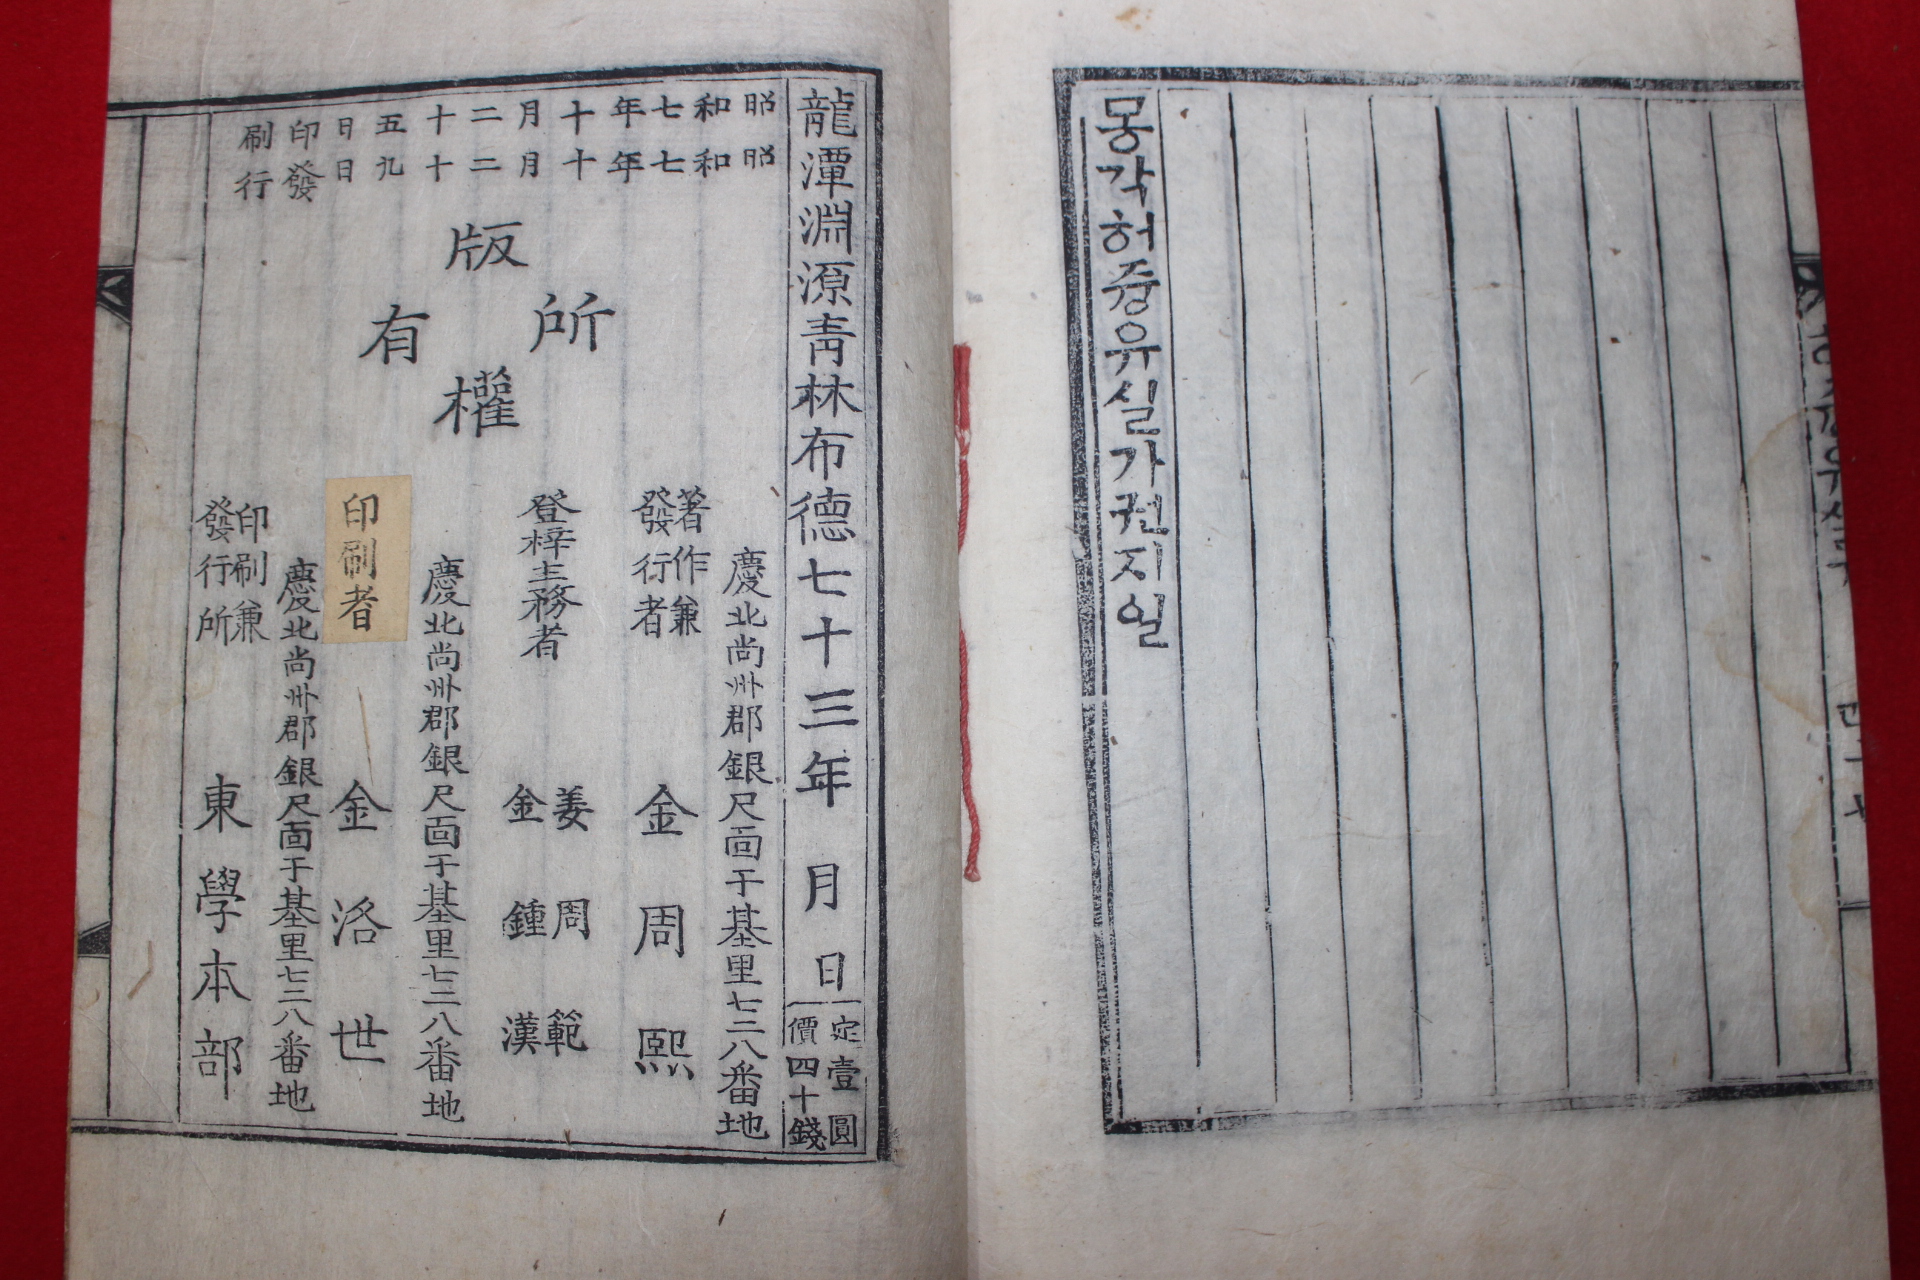 몽각허즁유실가권지일
龍潭淵源靑林布德七十三年 月 日
定價 壹圓四十錢
昭和七年十月二十五日印刷
昭和七年十月二十九日發行
版權所有
慶北尙州郡銀尺面于基里七三八番地
著作兼發行者 金周熙
登梓主務者 姜周範 金鍾漢
慶北尙州郡銀尺面于基里七三八番地
印刷者 金洛世
慶北尙州郡銀尺面于基里七三八番地
印刷兼發行所 東學本部